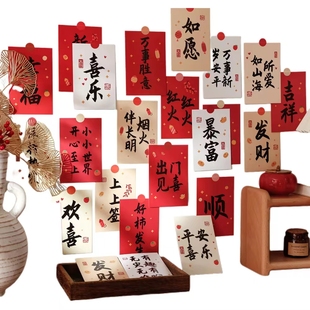 幸福
喜乐
万事胜意
如愿
岁安平
万事新
所爱
如山海
吉祥
小小世界
开心至上
烟火
伴长明
红火
红火
暴富
发财
欢喜
上上签
好柿发生
出见
门喜
顺
发财
平安
喜乐